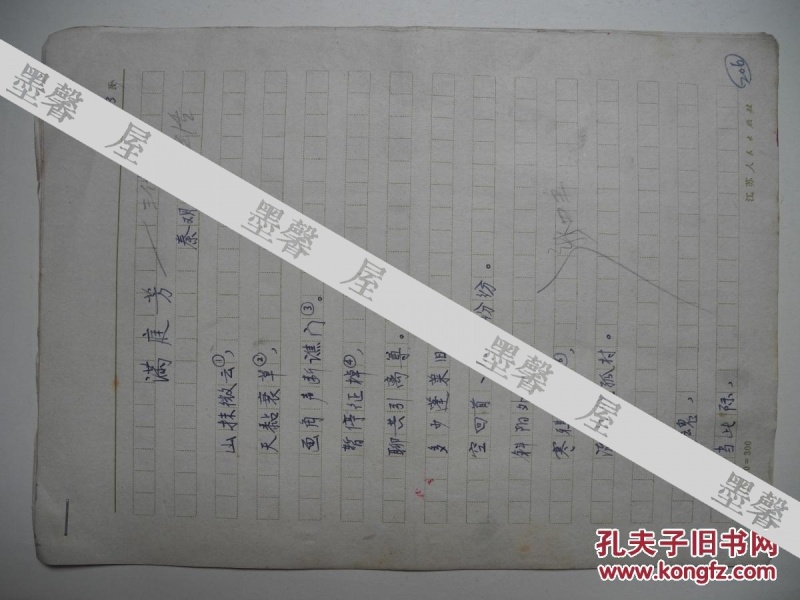 206
满庭芳
秦观
山抹微云①,
天黏衰草②,
画角声断谯门③。
暂停征棹④,
聊共引离尊。
多少蓬莱旧
空回首、 纷纷。
斜阳外
寒
孤村。
魂,
当此际,
江苏人民出版社
=300
墨馨 屋
墨馨 屋
墨馨 屋
墨馨
孔夫子旧书网
www.kongfz.com